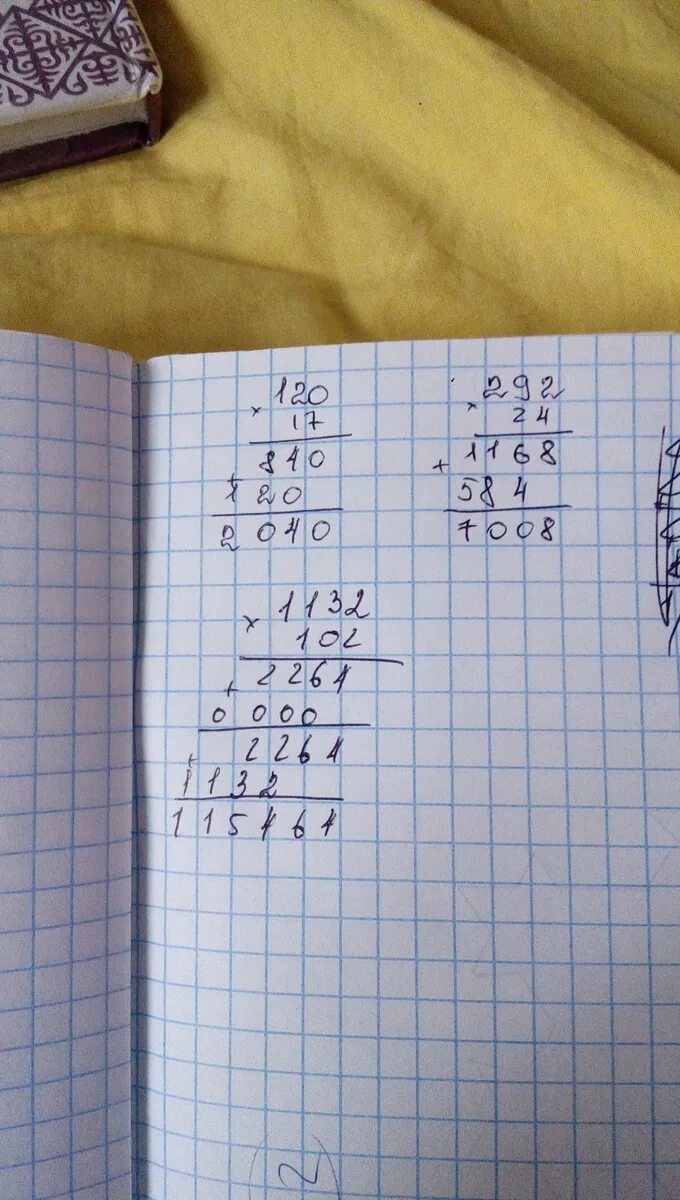 120
× 17
840
+
120
2040
292
× 24
1168
+
584
7008
1132
× 102
2264
+
0000
2264
+
1132
115464
2